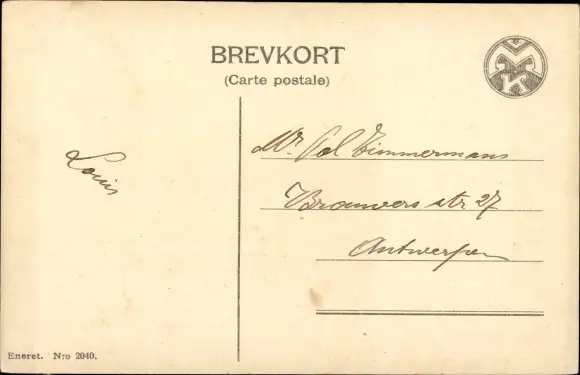 BREVKORT
(Carte postale)
Louis
Mr. Pol Timmermans
Brouwers str 27
Antwerpen
Eneret. Nro 2040.